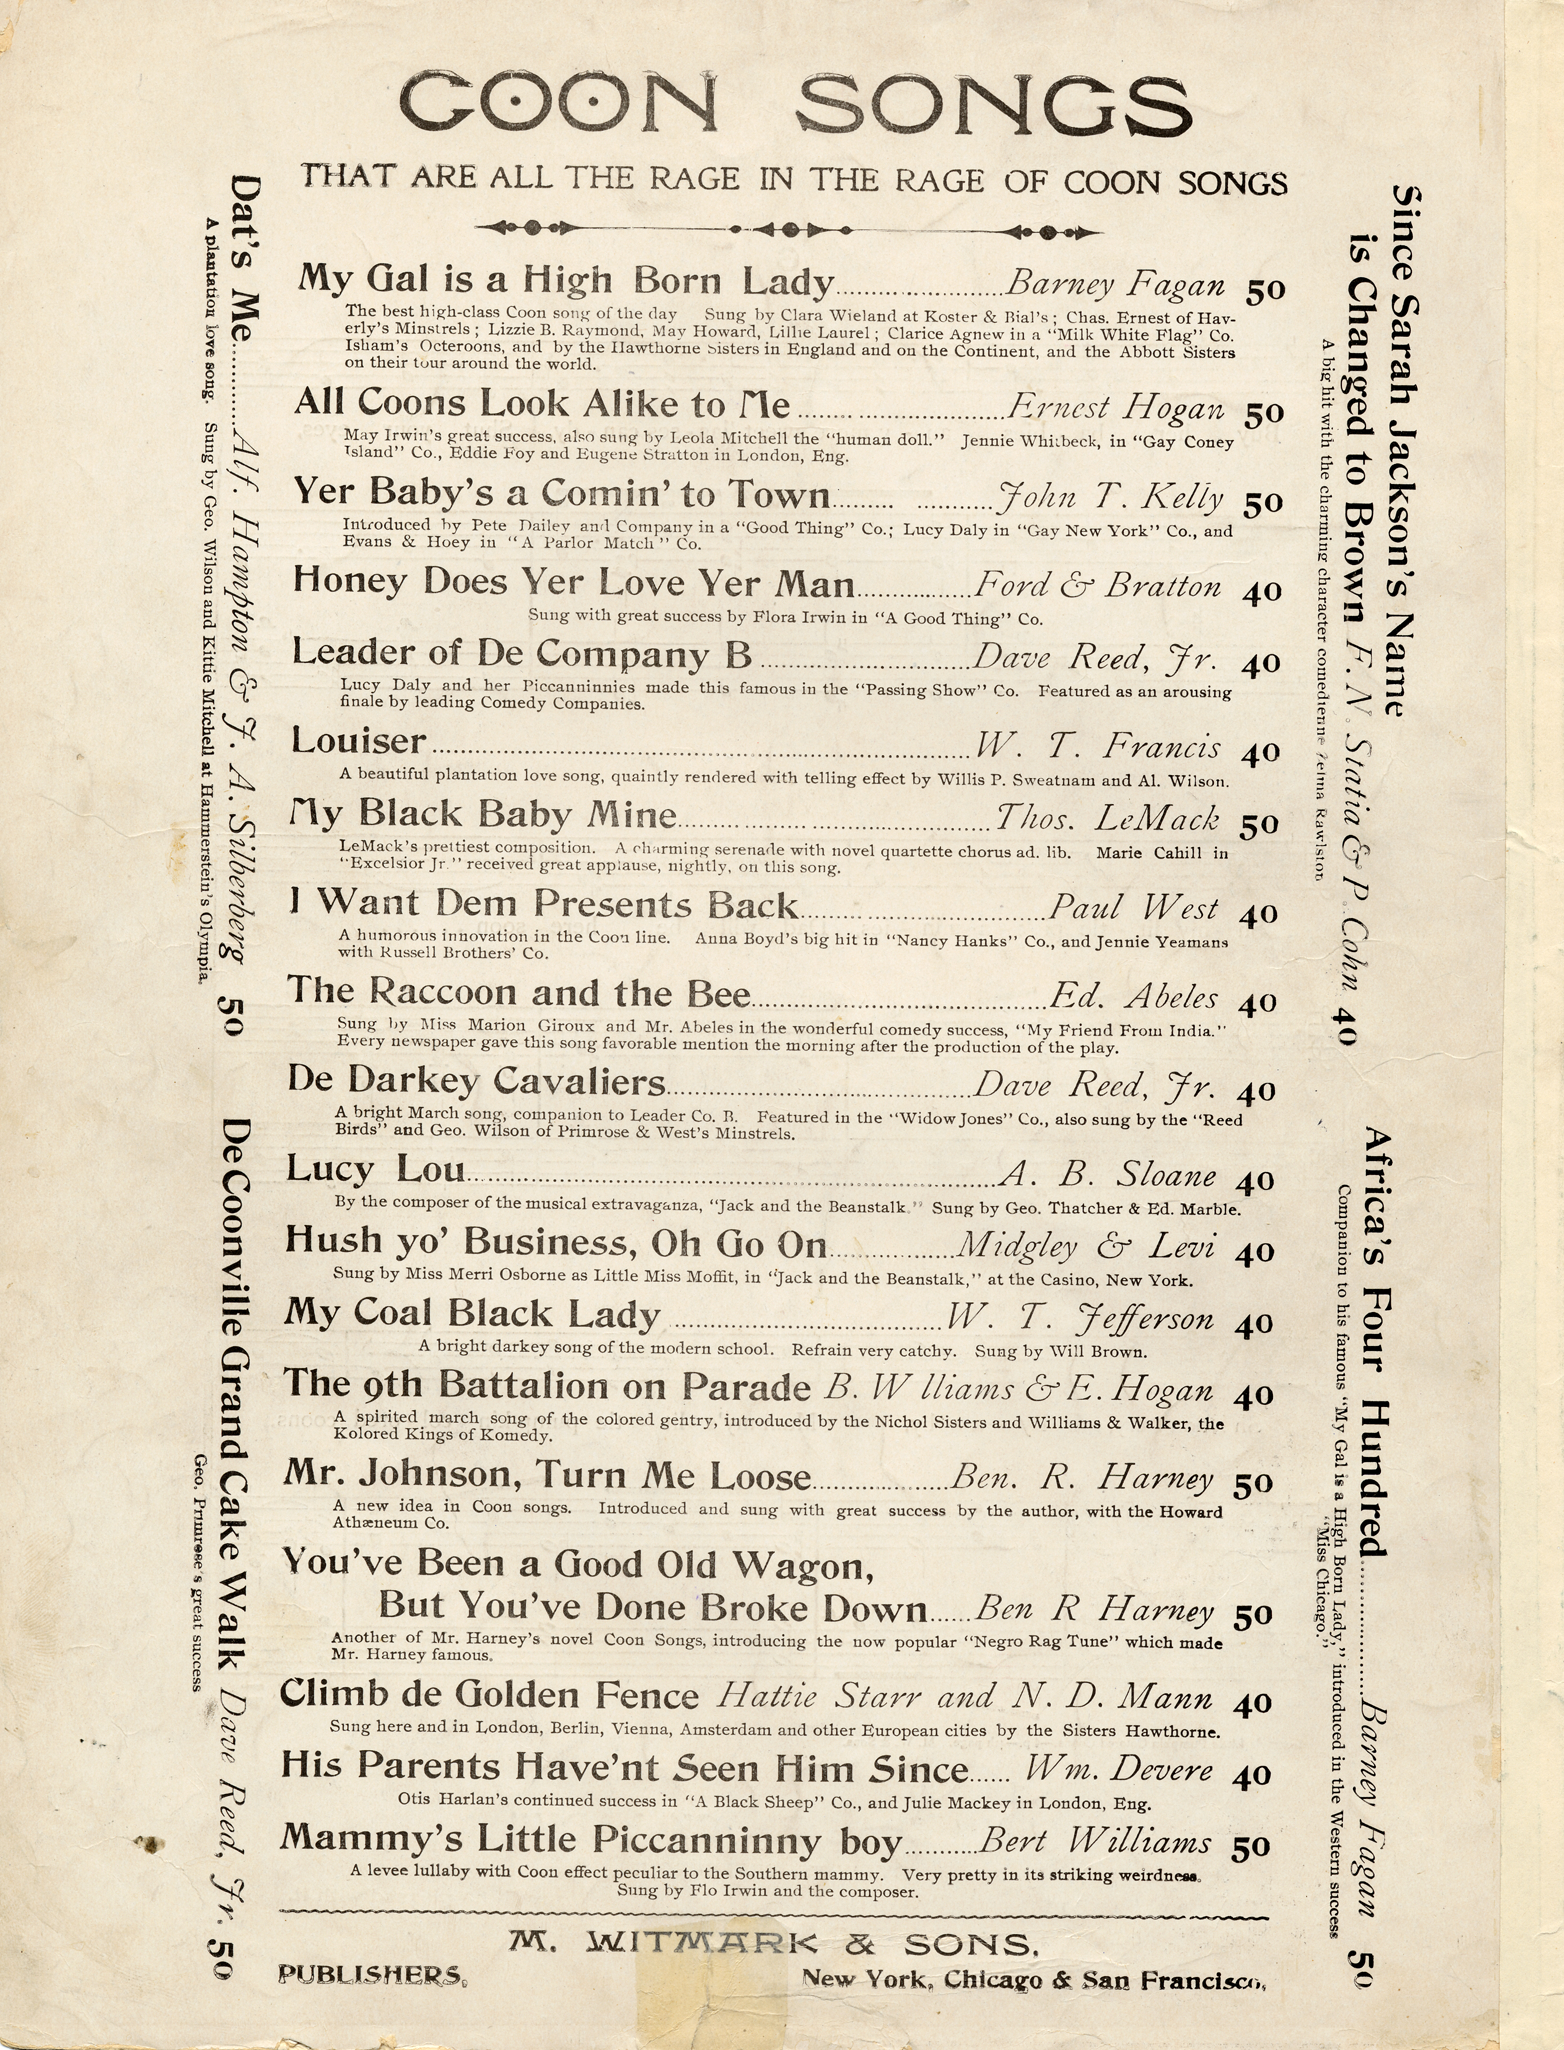 COON SONGS
THAT ARE ALL THE RAGE IN THE RAGE OF COON SONGS
My Gal is a High Born Lady.....................Barney Fagan 50
The best high-class Coon song of the day Sung by Clara Wieland at Koster & Bial's; Chas. Ernest of Hav-
erly's Minstrels; Lizzie B. Raymond, May Howard, Lillie Laurel; Clarice Agnew in a "Milk White Flag" Co.
Isham's Octeroons, and by the Hawthorne Sisters in England and on the Continent, and the Abbott Sisters
on their tour around the world.
All Coons Look Alike to Me.........................Ernest Hogan 50
May Irwin's great success, also sung by Leola Mitchell the "human doll." Jennie Whitbeck, in "Gay Coney
Island" Co., Eddie Foy and Eugene Stratton in London, Eng.
Yer Baby's a Comin' to Town......... ...........John T. Kelly 50
Introduced by Pete Dailey and Company in a "Good Thing" Co.; Lucy Daly in "Gay New York" Co., and
Evans & Hoey in "A Parlor Match" Co.
Honey Does Yer Love Yer Man..............Ford & Bratton 40
Sung with great success by Flora Irwin in "A Good Thing" Co.
Leader of De Company B..........................Dave Reed, Jr. 40
Lucy Daly and her Piccanninnies made this famous in the "Passing Show" Co. Featured as an arousing
finale by leading Comedy Companies.
Louiser..................................................................W. T. Francis 40
A beautiful plantation love song, quaintly rendered with telling effect by Willis P. Sweatnam and Al. Wilson.
My Black Baby Mine.......................................Thos. LeMack 50
LeMack's prettiest composition. A charming serenade with novel quartette chorus ad. lib. Marie Cahill in
"Excelsior Jr." received great applause, nightly, on this song.
I Want Dem Presents Back..............................Paul West 40
A humorous innovation in the Coon line. Anna Boyd's big hit in "Nancy Hanks" Co., and Jennie Yeamans
with Russell Brothers' Co.
The Raccoon and the Bee....................................Ed. Abeles 40
Sung by Miss Marion Giroux and Mr. Abeles in the wonderful comedy success, "My Friend From India."
Every newspaper gave this song favorable mention the morning after the production of the play.
De Darkey Cavaliers.....................................Dave Reed, Jr. 40
A bright March song, companion to Leader Co. B. Featured in the "Widow Jones" Co., also sung by the "Reed
Birds" and Geo. Wilson of Primrose & West's Minstrels.
Lucy Lou.................................................................A. B. Sloane 40
By the composer of the musical extravaganza, "Jack and the Beanstalk." Sung by Geo. Thatcher & Ed. Marble.
Hush yo' Business, Oh Go On...............Midgley & Levi 40
Sung by Miss Merri Osborne as Little Miss Moffit, in "Jack and the Beanstalk," at the Casino, New York.
My Coal Black Lady .................................W. T. Jefferson 40
A bright darkey song of the modern school. Refrain very catchy. Sung by Will Brown.
The 9th Battalion on Parade B. W lliams & E. Hogan 40
A spirited march song of the colored gentry, introduced by the Nichol Sisters and Williams & Walker, the
Kolored Kings of Komedy.
Mr. Johnson, Turn Me Loose.................Ben. R. Harney 50
A new idea in Coon songs. Introduced and sung with great success by the author, with the Howard
Athæneum Co.
You've Been a Good Old Wagon,
But You've Done Broke Down......Ben R Harney 50
Another of Mr. Harney's novel Coon Songs, introducing the now popular "Negro Rag Tune" which made
Mr. Harney famous.
Climb de Golden Fence Hattie Starr and N. D. Mann 40
Sung here and in London, Berlin, Vienna, Amsterdam and other European cities by the Sisters Hawthorne.
His Parents Have'nt Seen Him Since...... Wm. Devere 40
Otis Harlan's continued success in "A Black Sheep" Co., and Julie Mackey in London, Eng.
Mammy's Little Piccanninny boy...........Bert Williams 50
A levee lullaby with Coon effect peculiar to the Southern mammy. Very pretty in its striking weirdness.
Sung by Flo Irwin and the composer.
M. WITMARK & SONS,
PUBLISHERS, New York, Chicago & San Francisco,
Dat's Me..........Alf. Hampton & J. A. Silberberg 50
A plantation love song. Sung by Geo. Wilson and Kittie Mitchell at Hammerstein's Olympia.
De Coonville Grand Cake Walk Dave Reed, Jr. 50
Geo. Primrose's great success
Since Sarah Jackson's Name
is Changed to Brown F. N. Statia & P. Cohn 40
A big hit with the charming character comedienne Zelma Rawlston
Africa's Four Hundred...............Barney Fagan 50
Companion to his famous "My Gal is a High Born Lady," introduced in the Western success
"Miss Chicago."